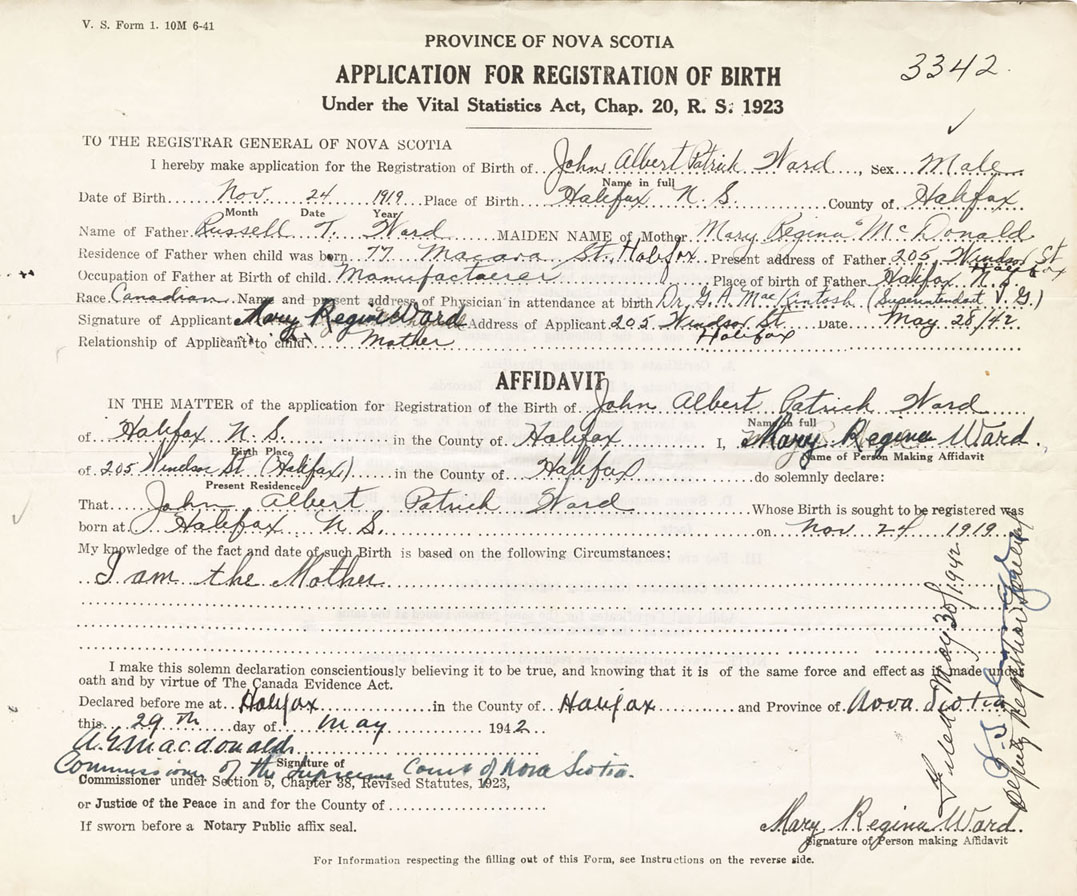 V. S. Form 1. 10M 6-41
PROVINCE OF NOVA SCOTIA
3342.
APPLICATION FOR REGISTRATION OF BIRTH
Under the Vital Statistics Act, Chap. 20, R. S. 1923
TO THE REGISTRAR GENERAL OF NOVA SCOTIA
I hereby make application for the Registration of Birth of John Albert Patrick Ward, Sex Male
Name in full
Date of Birth Nov. 24 1919 Place of Birth Halifax N. S. County of Halifax
Month Date Year
Name of Father Russell T. Ward MAIDEN NAME of Mother Mary Regina McDonald
Residence of Father when child was born 77 Macara St., Halifax Present address of Father 205 Windsor St
Halifax
Occupation of Father at Birth of child Manufactuerer Place of birth of Father Halifax N. S.
Race Canadian Name and present address of Physician in attendance at birth Dr. G. A. MacKintosh (Superintendant V. G.)
Signature of Applicant Mary Regina Ward Address of Applicant 205 Windsor St. Date May 28/42
Halifax
Relationship of Applicant to child. Mother
AFFIDAVIT
IN THE MATTER of the application for Registration of the Birth of John Albert Patrick Ward
Name in full
of Halifax N. S. in the County of Halifax I, Mary Regina Ward.
Birth Place Name of Person Making Affidavit
of 205 Windsor St. (Halifax) in the County of Halifax do solemnly declare:
Present Residence
That John Albert Patrick Ward Whose Birth is sought to be registered was
born at Halifax N. S. on Nov 24 1919
My knowledge of the fact and date of such Birth is based on the following Circumstances:
I am the Mother
I make this solemn declaration conscientiously believing it to be true, and knowing that it is of the same force and effect as if made under
oath and by virtue of The Canada Evidence Act.
Declared before me at Halifax in the County of Halifax and Province of Nova Scotia
this 29th day of May 1942
Macdonald
Signature of
Commissioner of the Supreme Court of Nova Scotia.
Commissioner under Section 5, Chapter 38, Revised Statutes, 1923,
or Justice of the Peace in and for the County of
If sworn before a Notary Public affix seal.
Mary Regina Ward.
Signature of Person making Affidavit
For Information respecting the filling out of this Form, see Instructions on the reverse side.
Filed May 30/1942
Deputy Registrar General